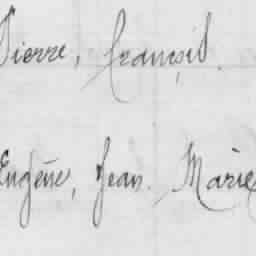 Pierre, François.
Eugène, Jean. Marie